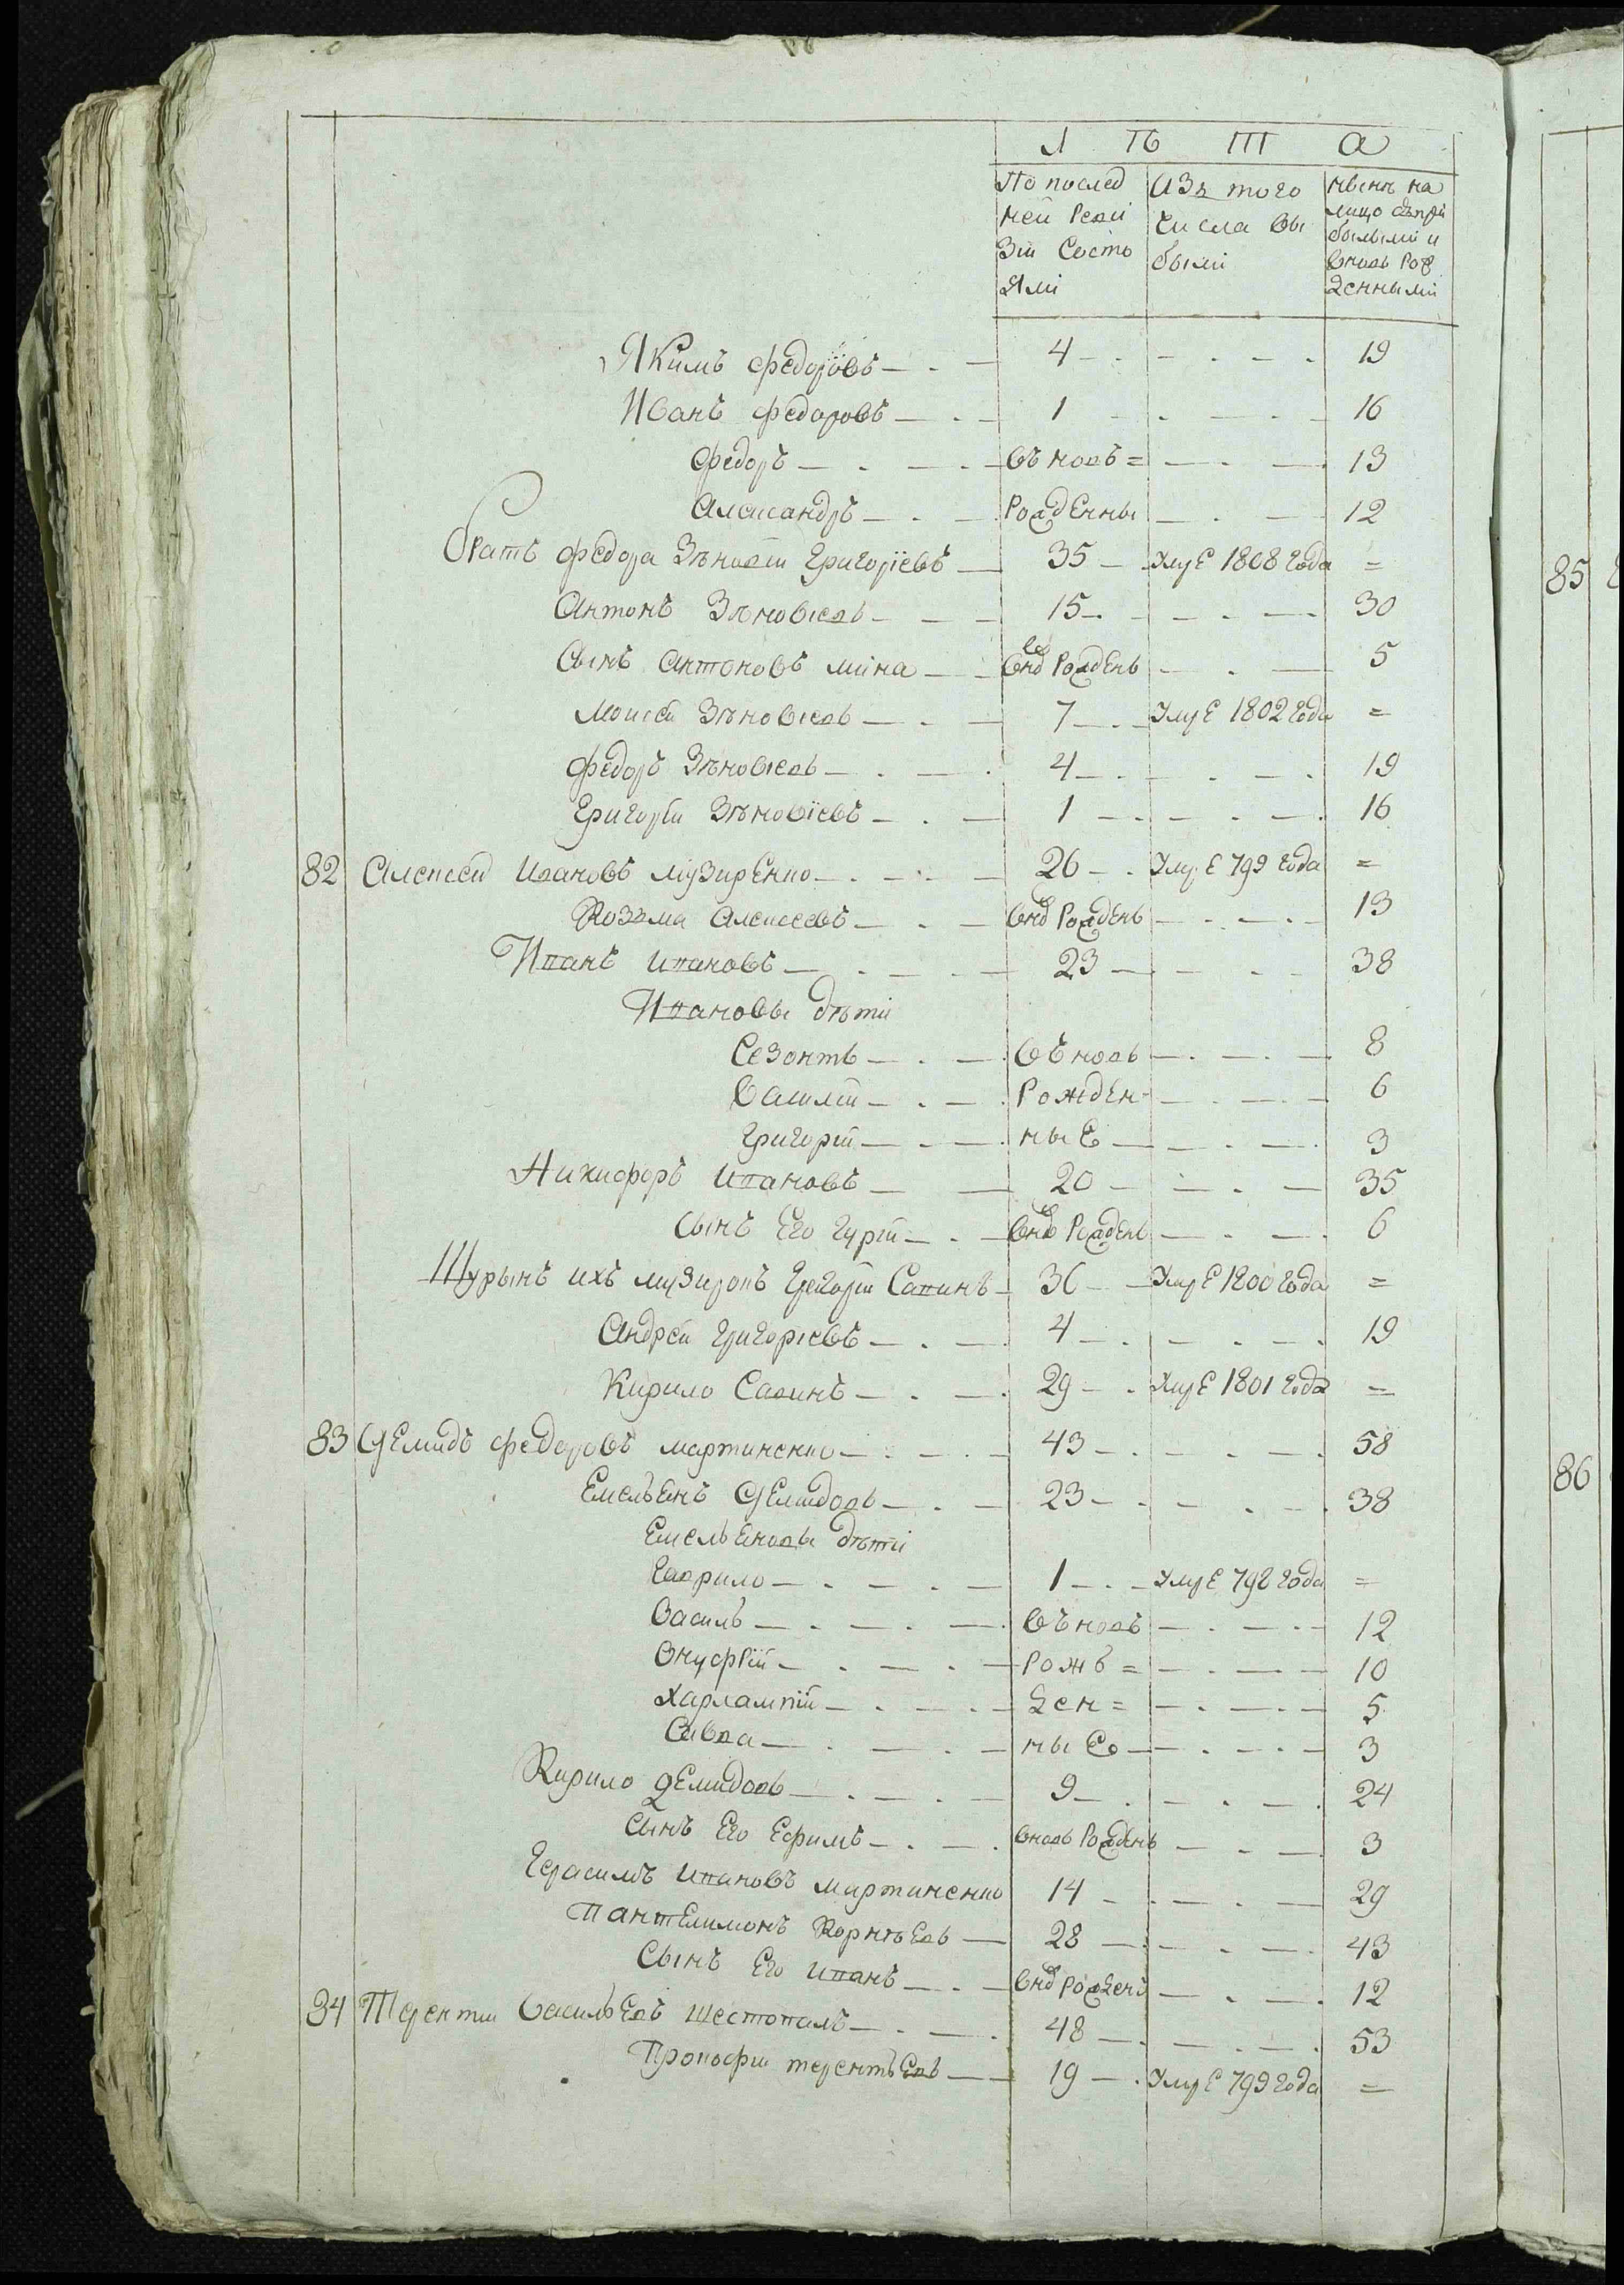 Л Ѣ Т А
По послед Изъ того Нынѣ на
ней реви числа вы лицо съ при
зiи состо были былыми и
яли вновь рож
денными
Якимъ Федоровъ 4 19
Иванъ Федоровъ 1 16
Федоръ въновь = 13
Александръ рожденны 12
Братъ Федора Зѣновiй Григорiевъ 35 умре 1808 года =
Антонъ Зѣновiевъ 15 30
Сынъ Антоновъ Мина внов рожденъ 5
Моисей Зѣновiевъ 7 умре 1802 года =
Федоръ Зѣновiевъ 4 19
Григорiй Зѣновiевъ 1 16
82 Алексей Ивановъ Музиренко 26 умре 799 года =
Козма Алексеевъ внов рожденъ 13
Иванъ Ивановъ 23 38
Ивановы дѣти
Созонтъ въновь 8
Василiй рожден- 6
Григорiй ные 3
Никифоръ Ивановъ 20 35
Сынъ его Гурiй внов рожденъ 6
Шурынъ ихъ музирокъ Григорiй Савинъ 36 умре 1800 года =
Андрей Григорiевъ 4 19
Кирило Савинъ 29 умре 1801 года =
83 Демидъ Федоровъ Мартиненко 43 58
Емельянъ Демидовъ 23 38
Емельяновы дѣти
Гаврило 1 умре 798 года =
Василь въновь 12
Онуфрiй рожъ = 10
Харлампiй ден = 5
Савва ные 3
Кирило Демидовъ 9 24
Сынъ его Ефимъ вновь рожденъ 3
Герасимъ Ивановъ Мартиненко 14 29
Пантелимонъ Корнѣевъ 28 43
Сынъ его Иванъ внов рожденъ 12
84 Терентiй Васильевъ Шестопалъ 48 53
Прокофiй Терентьевъ 19 умре 799 года =
85
86